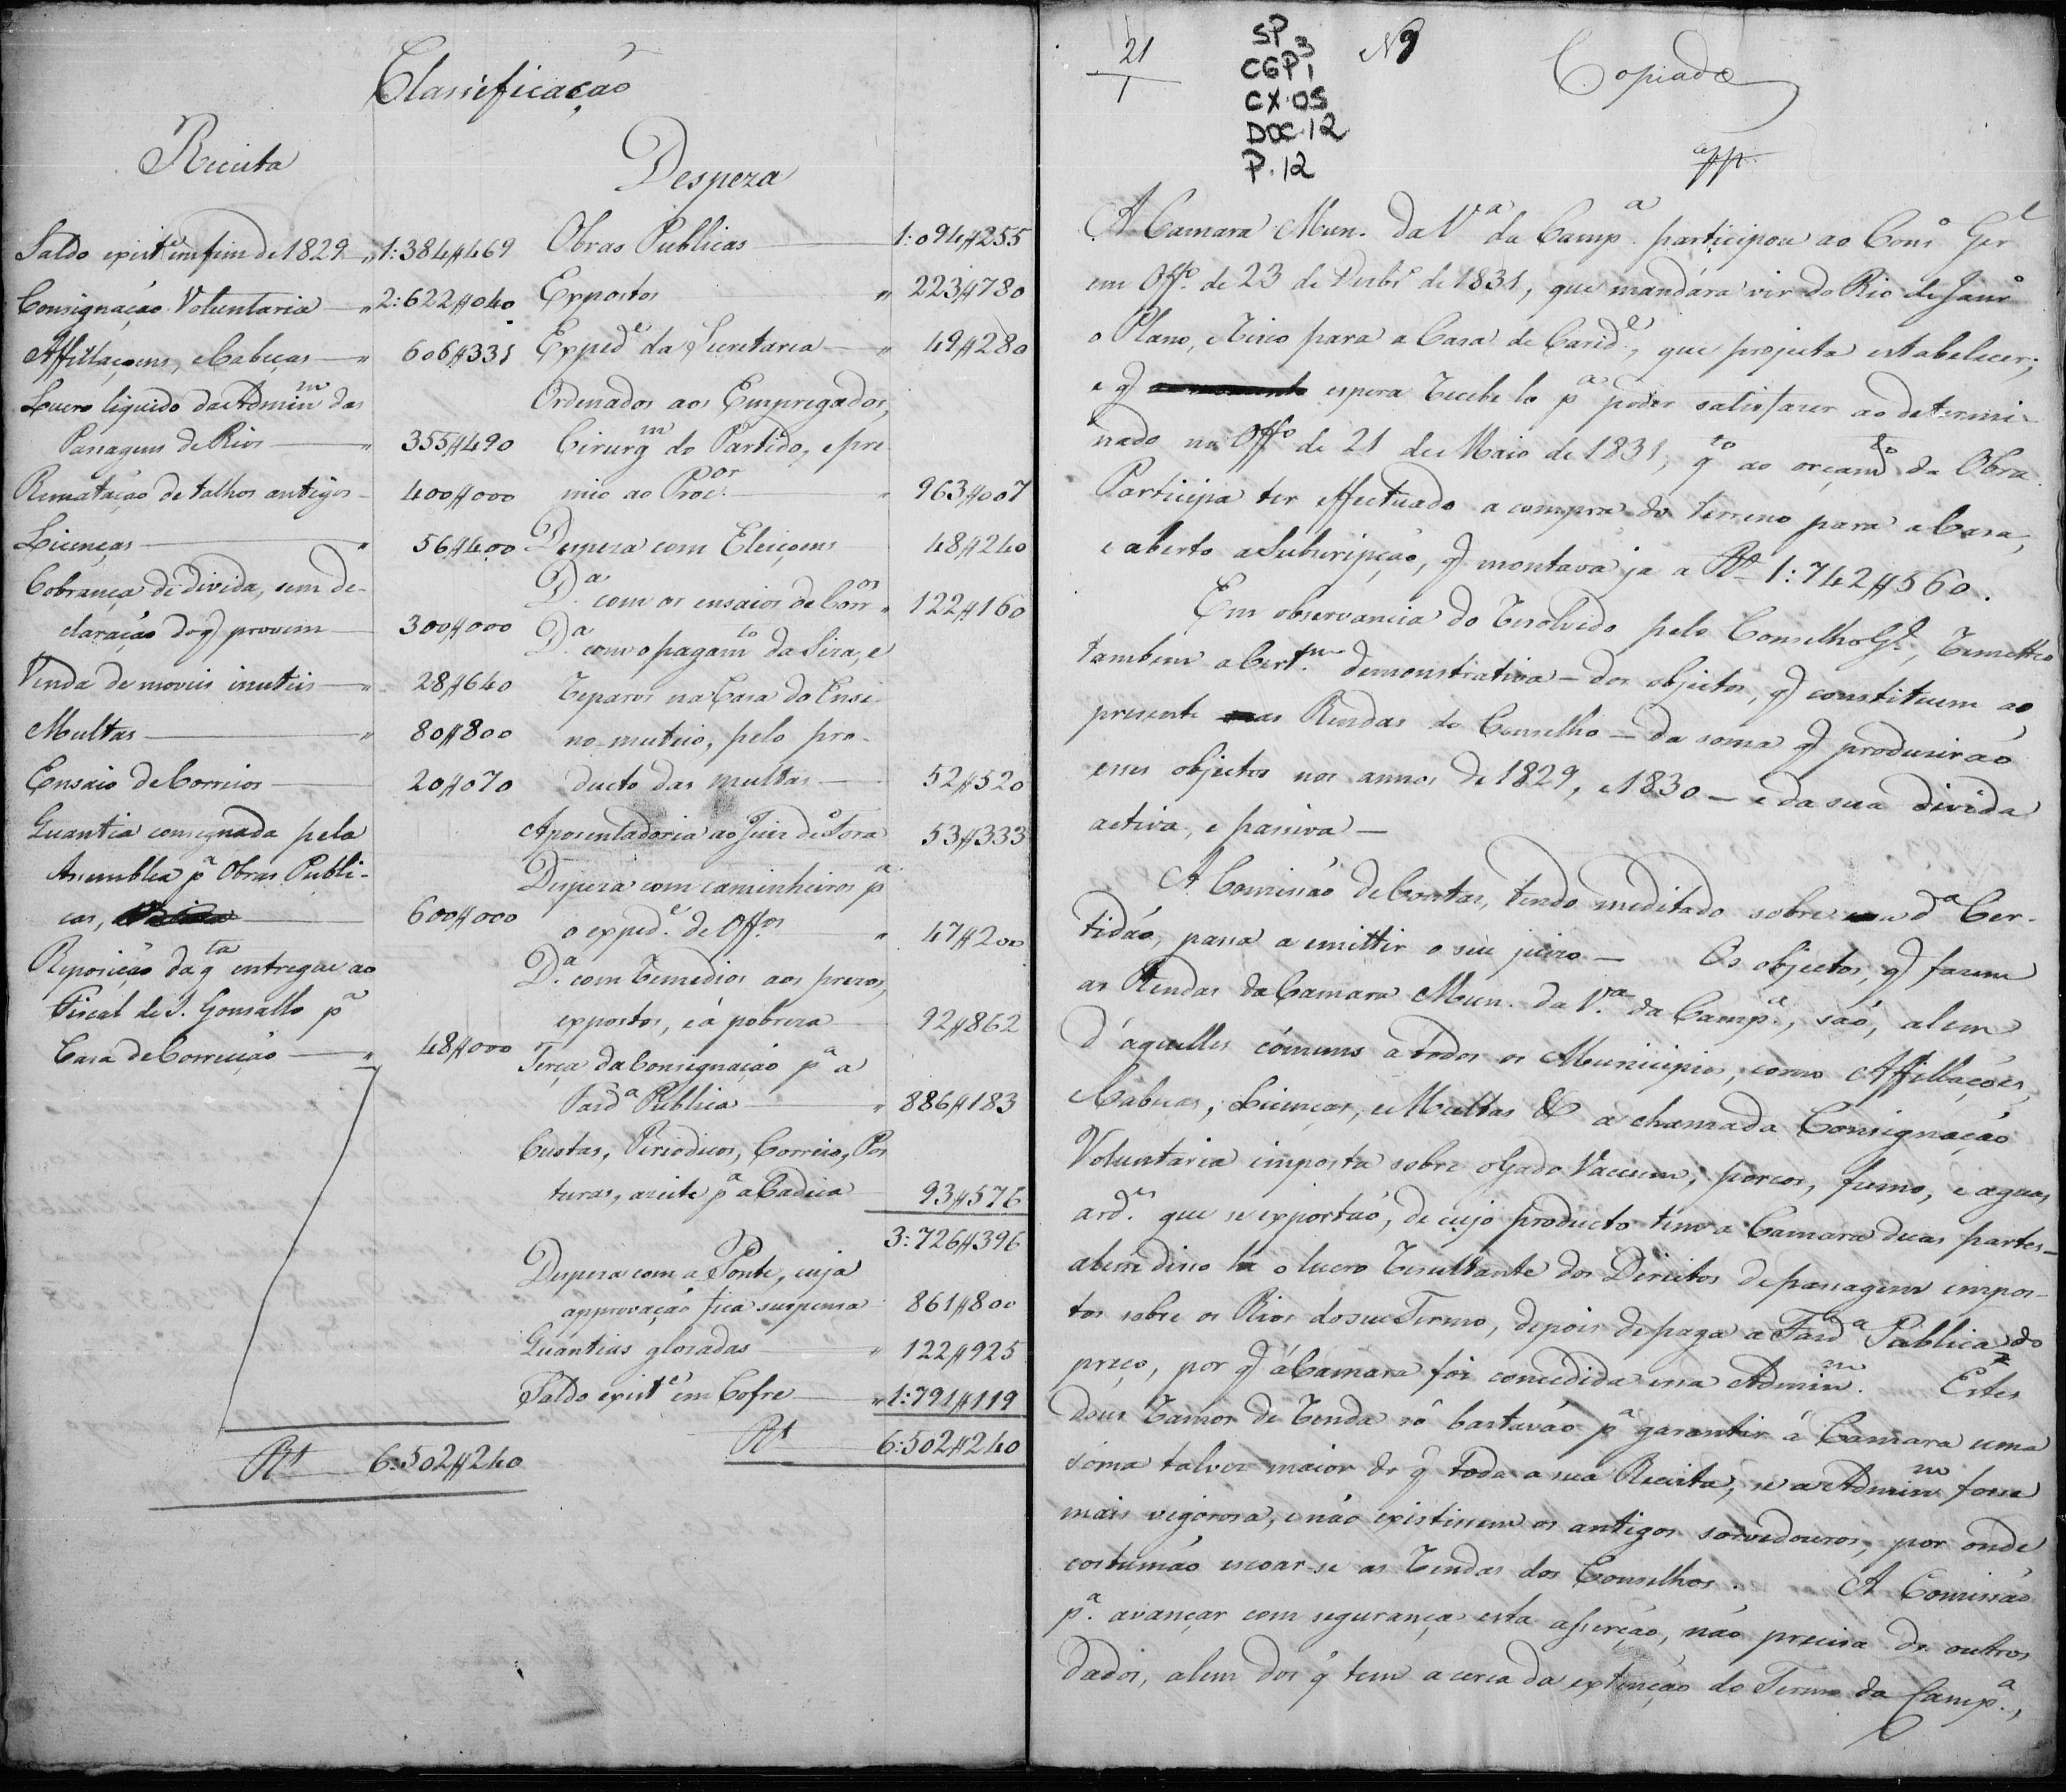 Classificação
Receita
Saldo exist.e em fim de 1829 — „ 1:384#469
Consignação Voluntaria — „ 2:622#040
Affillaçoens, e Cabeças — „ 606#331
Lucro liquido da Admin.m das
Passagens de Rios — „ 355#490
Rematação de talhos antigos — 400#000
Licenças — „ 56#400
Cobrança de divida, sem de-
claração do q provem — 300#000
Venda de moveis inuteis — „ 28#640
Multas — „ 80#800
Ensaio de Correios — 20#070
Quantia consignada pela
Assemblea p.a Obras Publi-
cas, — 600#000
Reposição da q.ta entregue ao
Fiscal de S. Gonsallo p.a
Casa de Correcção — „ 48#000
R.s 6:502#240
Despeza
Obras Publicas — 1:094#255
Expostos „ 223#780
Exped.e da Secretaria — „ 49#280
Ordenados aos Empregados,
Cirurg.m do Partido, e pre
mio ao Proc.or „ 963#007
Despeza com Eleiçoens 48#240
D.a com os ensaios de Corr.os „ 122#160
D.a com o pagam.to da Siza, e
reparos na Casa do Ensi-
no mutuo, pelo pro-
ducto das multas — 52#520
Aposentadoria ao Juiz de Fora 53#333
Despeza com caminheiros p.a
o exped.e de Off.os „ 47#200
D.a com remedios aos prezos,
expostos, e á pobreza 92#862
Terça da Consignação p.a a
Fazd.a Publica — „ 886#183
Custas, Periodicos, Correio, Pos
turas, azeite p.a a Cadea 93#576
3:726#396
Despeza com a Ponte, cuja
approvação fica suspensa 861#800
Quantias glosadas — „ 122#925
Saldo exist.e em Cofre — „ 1:791#119
R.s 6:502#240
21
1
SP
CGP 3
1
CX.05
DOC.12
P.12
N 9
Copiado
A Camara Mun. da V.a da Camp.a participou ao Cons.o Ger.l
em Off.o de 23 de Dezbr.o de 1831, que mandára vir do Rio de Janr.o
o Plano, e Risco para a Casa de Carid.e, que projecta estabelecer;
e q espera recebe lo p.a poder satisfazer ao determi-
nado no Off.o de 21 de Maio de 1831, q.to ao orçam.to da Obra.
Participa ter effectuado a compra do terreno para a Casa,
e aberto a Subscripção, q montava ja a R.s 1:742#560.
Em observancia do resolvido pelo Conselho G.l, remetteo
tambem a Cert.m demonstrativa — dos objectos, q constituem ao
presente as Rendas do Conselho — da soma q produsirão
esses objectos nos annos de 1829, e 1830 — e da sua divida
activa, e passiva —
A Comissão de Contas, tendo meditado sobre a d.a Cer-
tidão, passa a emittir o seu juizo — Os objectos, q fazem
as Rendas da Camara Mun. da V.a da Camp.a, são, alem
d'aquelles cómuns a todos os Municipios, como Affillações,
Cabecas, Licenças, e Multas &c a chamada Consignação
Voluntaria imposta sobre o Gado Vaccum, porcos, fumo, e aguas
ard.es que se exportão, de cujo producto tem a Camara duas partes —
alem disso ha o lucro resultante dos Direitos de passagem impos-
tos sobre os Rios do seu Termo, depois de paga a Fazd.a Publica do
preço, por q á Camara foi concedida essa Admin.m Estes
dous ramos de renda só bastavão p.a garantir á Camara uma
sóma talvez maior do q toda a sua Receita, se a Admin.m fosse
mais vigorosa, e não existissem os antigos sorvedouros, por onde
costumão escoar-se as rendas dos Conselhos. A Comissão
p.a avançar com segurança esta asserção, não precisa de outros
dados, alem dos q tem a cerca da extenção do Termo da Camp.a,